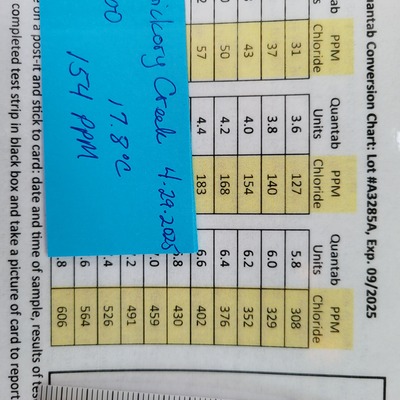 uantab Conversion Chart: Lot #A3285A, Exp. 09/2025
PPM Quantab PPM Quantab PPM
Chloride Units Chloride Units Chloride
31 3.6 127 5.8 308
37 3.8 140 6.0 329
43 4.0 154 6.2 352
50 4.2 168 6.4 376
57 4.4 183 6.6 402
.8 430
.0 459
.2 491
.4 526
.6 564
.8 606
Creek 4-29-2025
17.8°C
154 PPM
on a post-it and stick to card: date and time of sample, results of
completed test strip in black box and take a picture of card to report